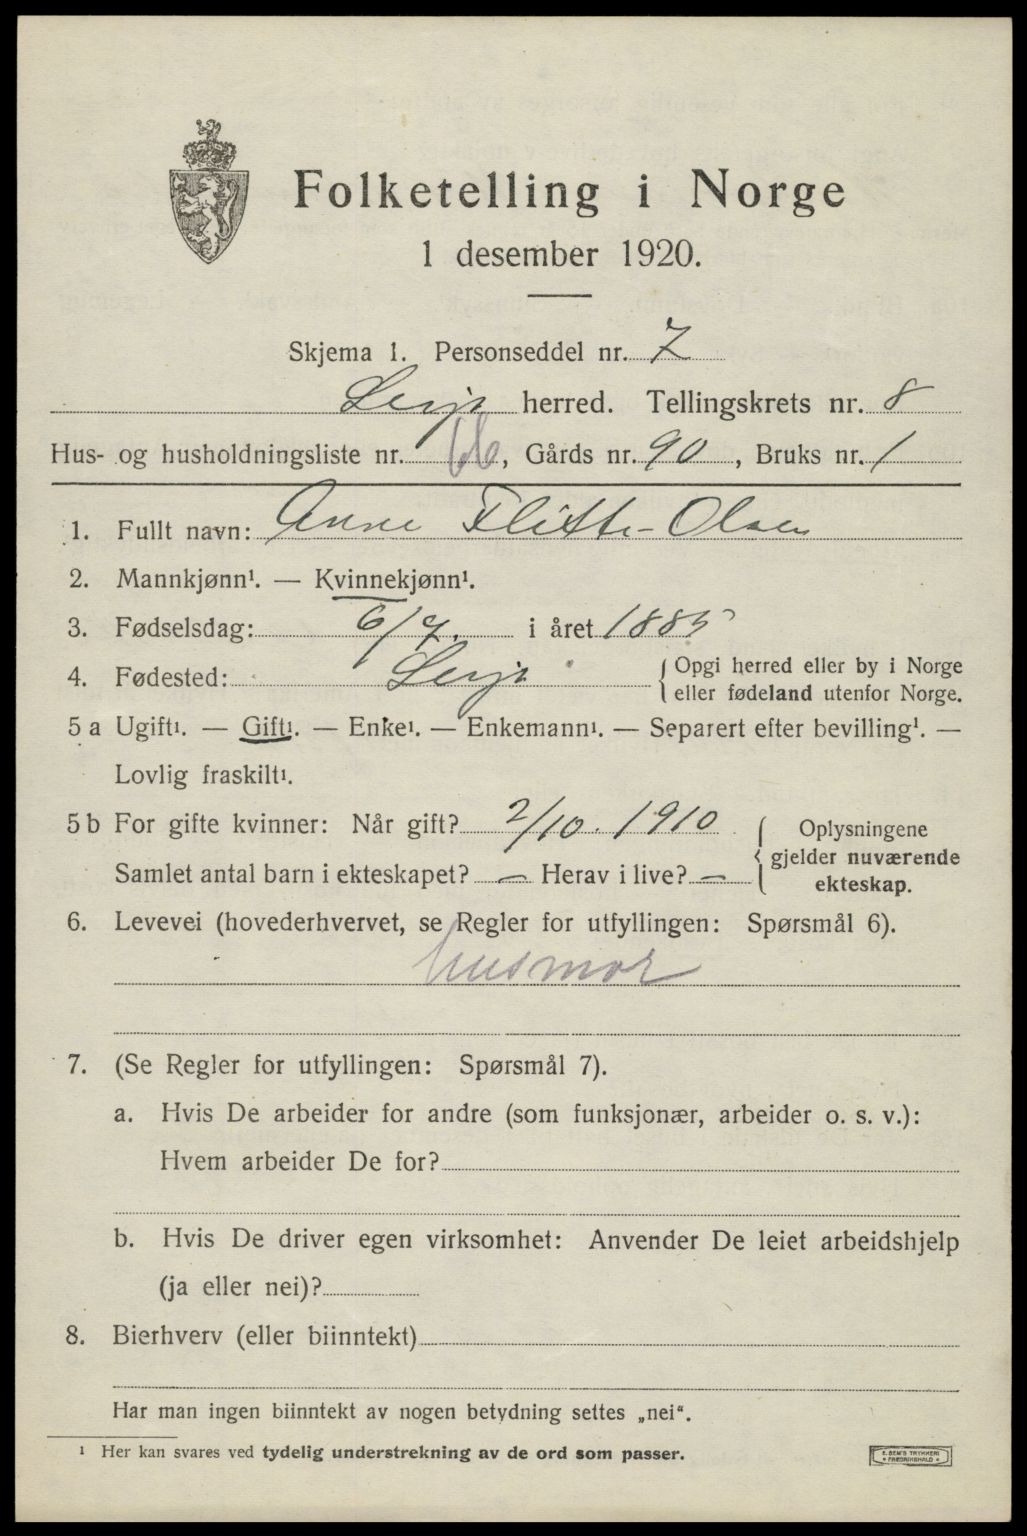 Folketelling i Norge
1 desember 1920.
Skjema 1. Personseddel nr. 2
Lesja herred. Tellingskrets nr. 8
Hus- og husholdningsliste nr. 66, Gårds nr. 90, Bruks nr. 1
1. Fullt navn: Anne Flitte-Olsen
2. Mannkjønn¹. — Kvinnekjønn¹.
3. Fødselsdag: 6/7. i året 1885
4. Fødested: Lesja {Opgi herred eller by i Norge
eller fødeland utenfor Norge.
5 a Ugift¹. — Gift¹. — Enke¹. — Enkemann¹. — Separert efter bevilling¹. —
Lovlig fraskilt¹.
5 b For gifte kvinner: Når gift? 2/10. 1910
Samlet antal barn i ekteskapet? — Herav i live? —
{Oplysningene
gjelder nuværende
ekteskap.
6. Levevei (hovederhvervet, se Regler for utfyllingen: Spørsmål 6).
husmor
7. (Se Regler for utfyllingen: Spørsmål 7).
a. Hvis De arbeider for andre (som funksjonær, arbeider o. s. v.):
Hvem arbeider De for?
b. Hvis De driver egen virksomhet: Anvender De leiet arbeidshjelp
(ja eller nei)?
8. Bierhverv (eller biinntekt)
Har man ingen biinntekt av nogen betydning settes „nei“.
¹ Her kan svares ved tydelig understrekning av de ord som passer.
E. SEM'S TRYKKERI
• FREDRIKSHALD •